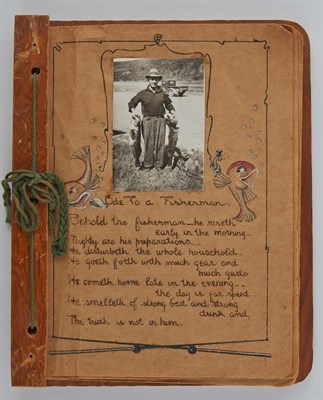 Ode To a Fisherman.
Behold the fisherman—he riseth
early in the morning—
Mighty are his preparations—
He disturbeth the whole household—
He goeth forth with much gear and
much gusto
He cometh home late in the evening—
the day is far spent
He smelleth of strong bait and strong
drink and,
The truth is not in him.